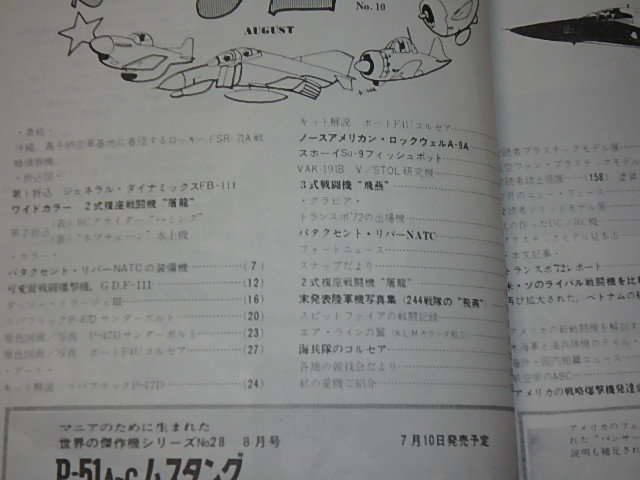 No. 10
AUGUST
・表紙・
沖縄、嘉手納空軍基地に着陸するロッキードSR-71A戦
略偵察機。
・折込図・
第1折込 ジェネラル・ダイナミックスFB-111
ワイドカラー 2式複座戦闘機“屠龍”
第2折込 (表) RCグライダー“ハミング”
(裏) 水上機
・カラー・
パタクセント・リバーNATCの装備機 (7)
可変翼戦闘爆撃機、G.D.F-111 (12)
ダッソー・ミラージュIII (16)
リパブリックP-47Dサンダーボルト (20)
原色図面/写真 P-47Dサンダーボルト (23)
原色図面/写真 ボートF4Uコルセア (27)
・アート・
キット解説 リパブリックP-47D (24)
キット解説 ボートF4Uコルセア
ノースアメリカン・ロックウェルA-9A
スホーイSu-9フィッシュポット
VAK-191B V/STOL研究機
3式戦闘機“飛燕”
・グラビア・
トランスポ'72の出場機
パタクセント・リバーNATC
フォートニュース
スナップだより
2式複座戦闘機“屠龍”
未発表陸軍機写真集(244戦隊の“飛燕”)
スピットファイアの戦闘記録
エア・ラインの翼(KLMオランダ航空)
海兵隊のコルセア
各地の競技会だより
私の愛機ご紹介
読者プラスチックモデル展
空ファン・プラスチックモデル
読者誌上個展 (158) 塗装
今月のニュー・フェース
読者ソリッドモデル展
の作ったUC/RC機
プラスチックモデル見本市
・本文記事・
トランスポ'72レポート
米・ソのライバル戦闘機を比
再び拡大された、ベトナムの
アメリカの新戦闘機を解剖す
海軍と海兵隊機のテイル・
海外・国内短篇ニュース
航空学のABC
アメリカの戦略爆撃機発達
マニアのために生まれた
世界の傑作機シリーズNo.28 8月号
7月10日発売予定
P-51A~Cムスタング
アメリカのフェ
れた“パンサー
説明も補足され